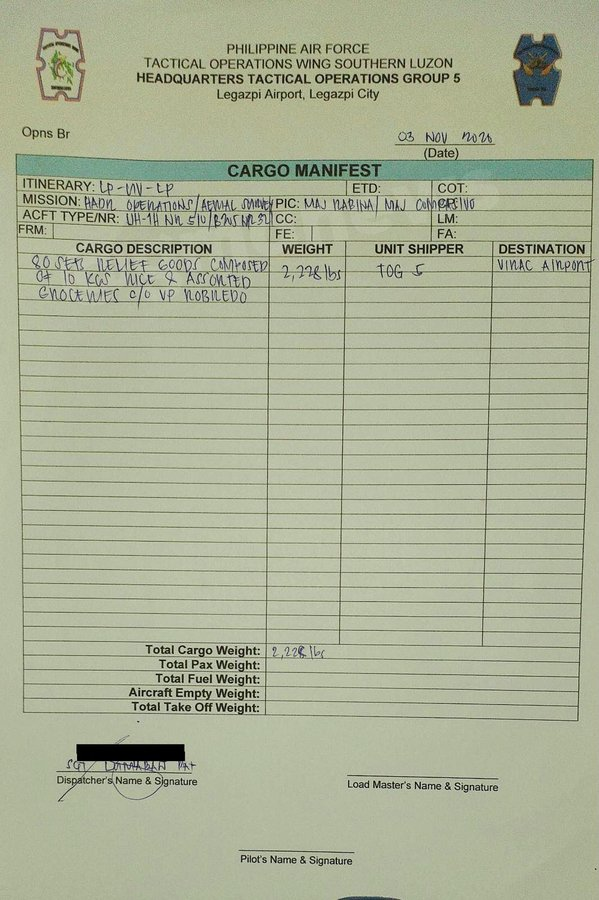 PHILIPPINE AIR FORCE
TACTICAL OPERATIONS WING SOUTHERN LUZON
HEADQUARTERS TACTICAL OPERATIONS GROUP 5
Legazpi Airport, Legazpi City
Opns Br
03 NOV 2020
(Date)
CARGO MANIFEST
ITINERARY: LP-VIV-LP ETD: COT:
MISSION: HADR OPERATIONS/AERIAL SURVEY PIC: MAJ RABINA/ MAJ
ACFT TYPE/NR: UH-1H NR 510/ CC: LM:
FRM: FE: FA:
CARGO DESCRIPTION WEIGHT UNIT SHIPPER DESTINATION
80 SETS RELIEF GOODS COMPOSED 2,228 lbs TOG 5 VIRAC AIRPORT
OF 10 KGS RICE & ASSORTED
GROCERIES c/o VP ROBREDO
Total Cargo Weight: 2,228 lbs
Total Pax Weight:
Total Fuel Weight:
Aircraft Empty Weight:
Total Take Off Weight:
SGT PAF
Dispatcher's Name & Signature
Load Master's Name & Signature
Pilot's Name & Signature